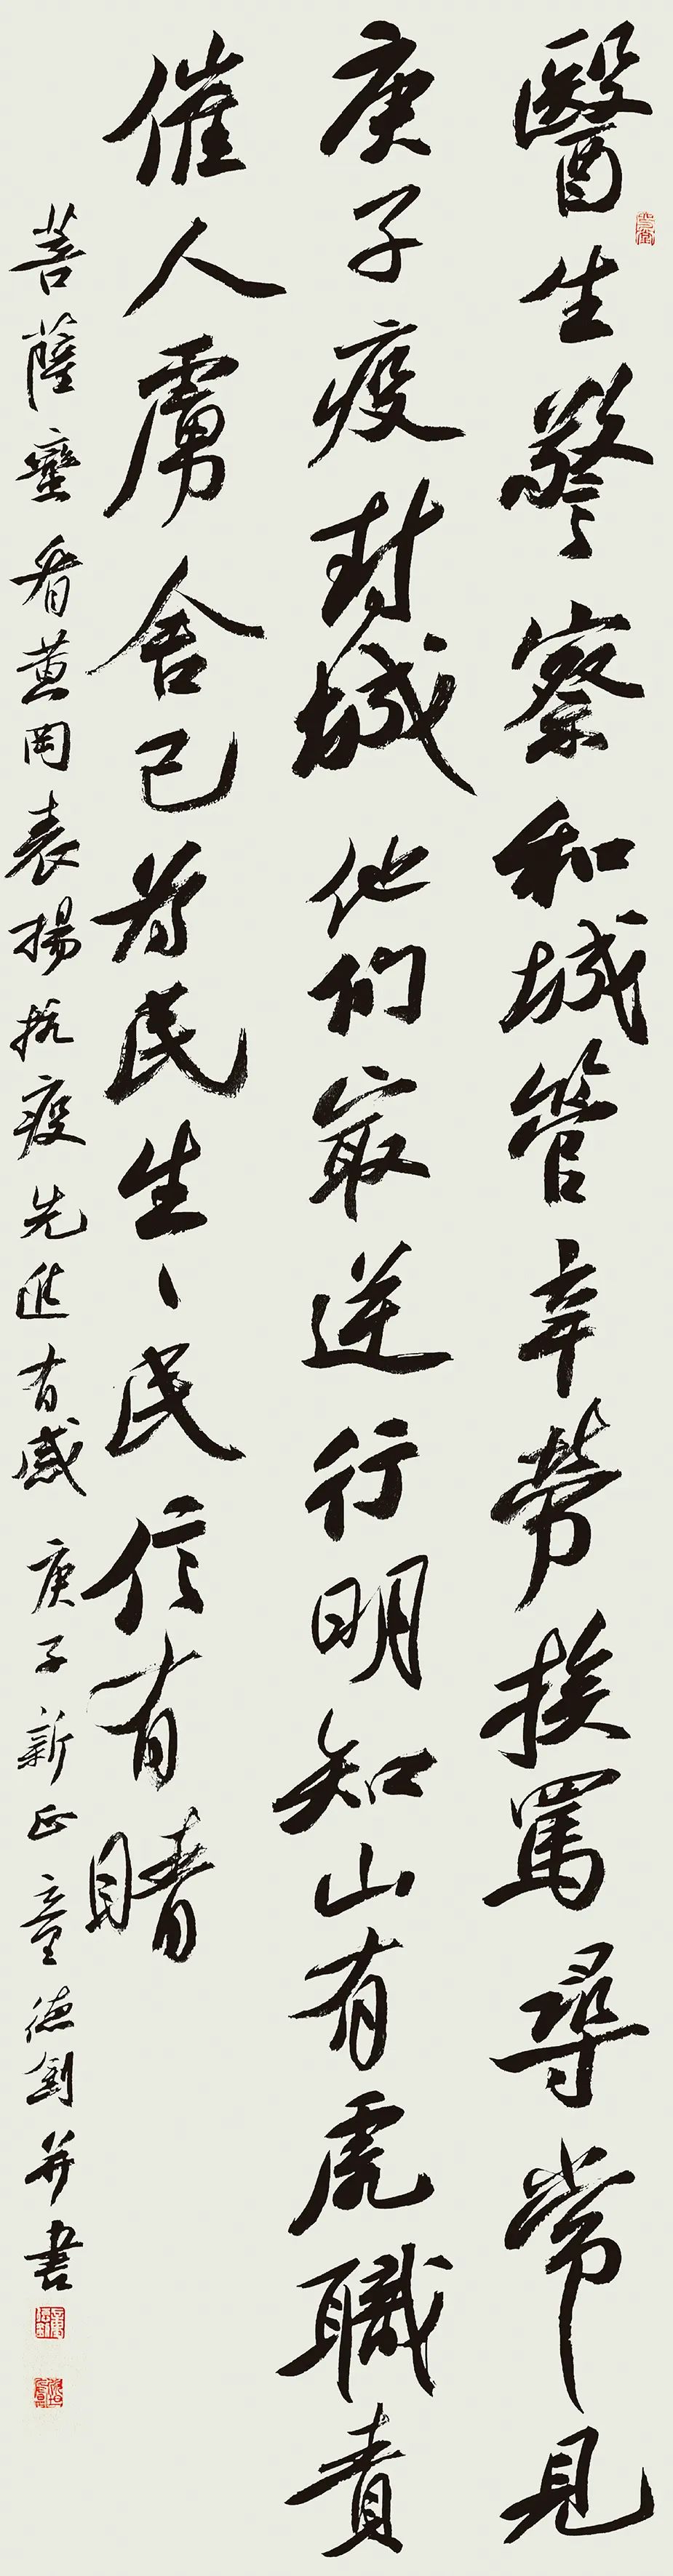 醫生警察和城管辛勞挨罵尋常見
庚子疫封城他們最逆行明知山有虎職責
催人虜舍己為民生生民信有睛
菩薩蠻看黃岡表揚抗疫先進有感庚子新正童德劍并書